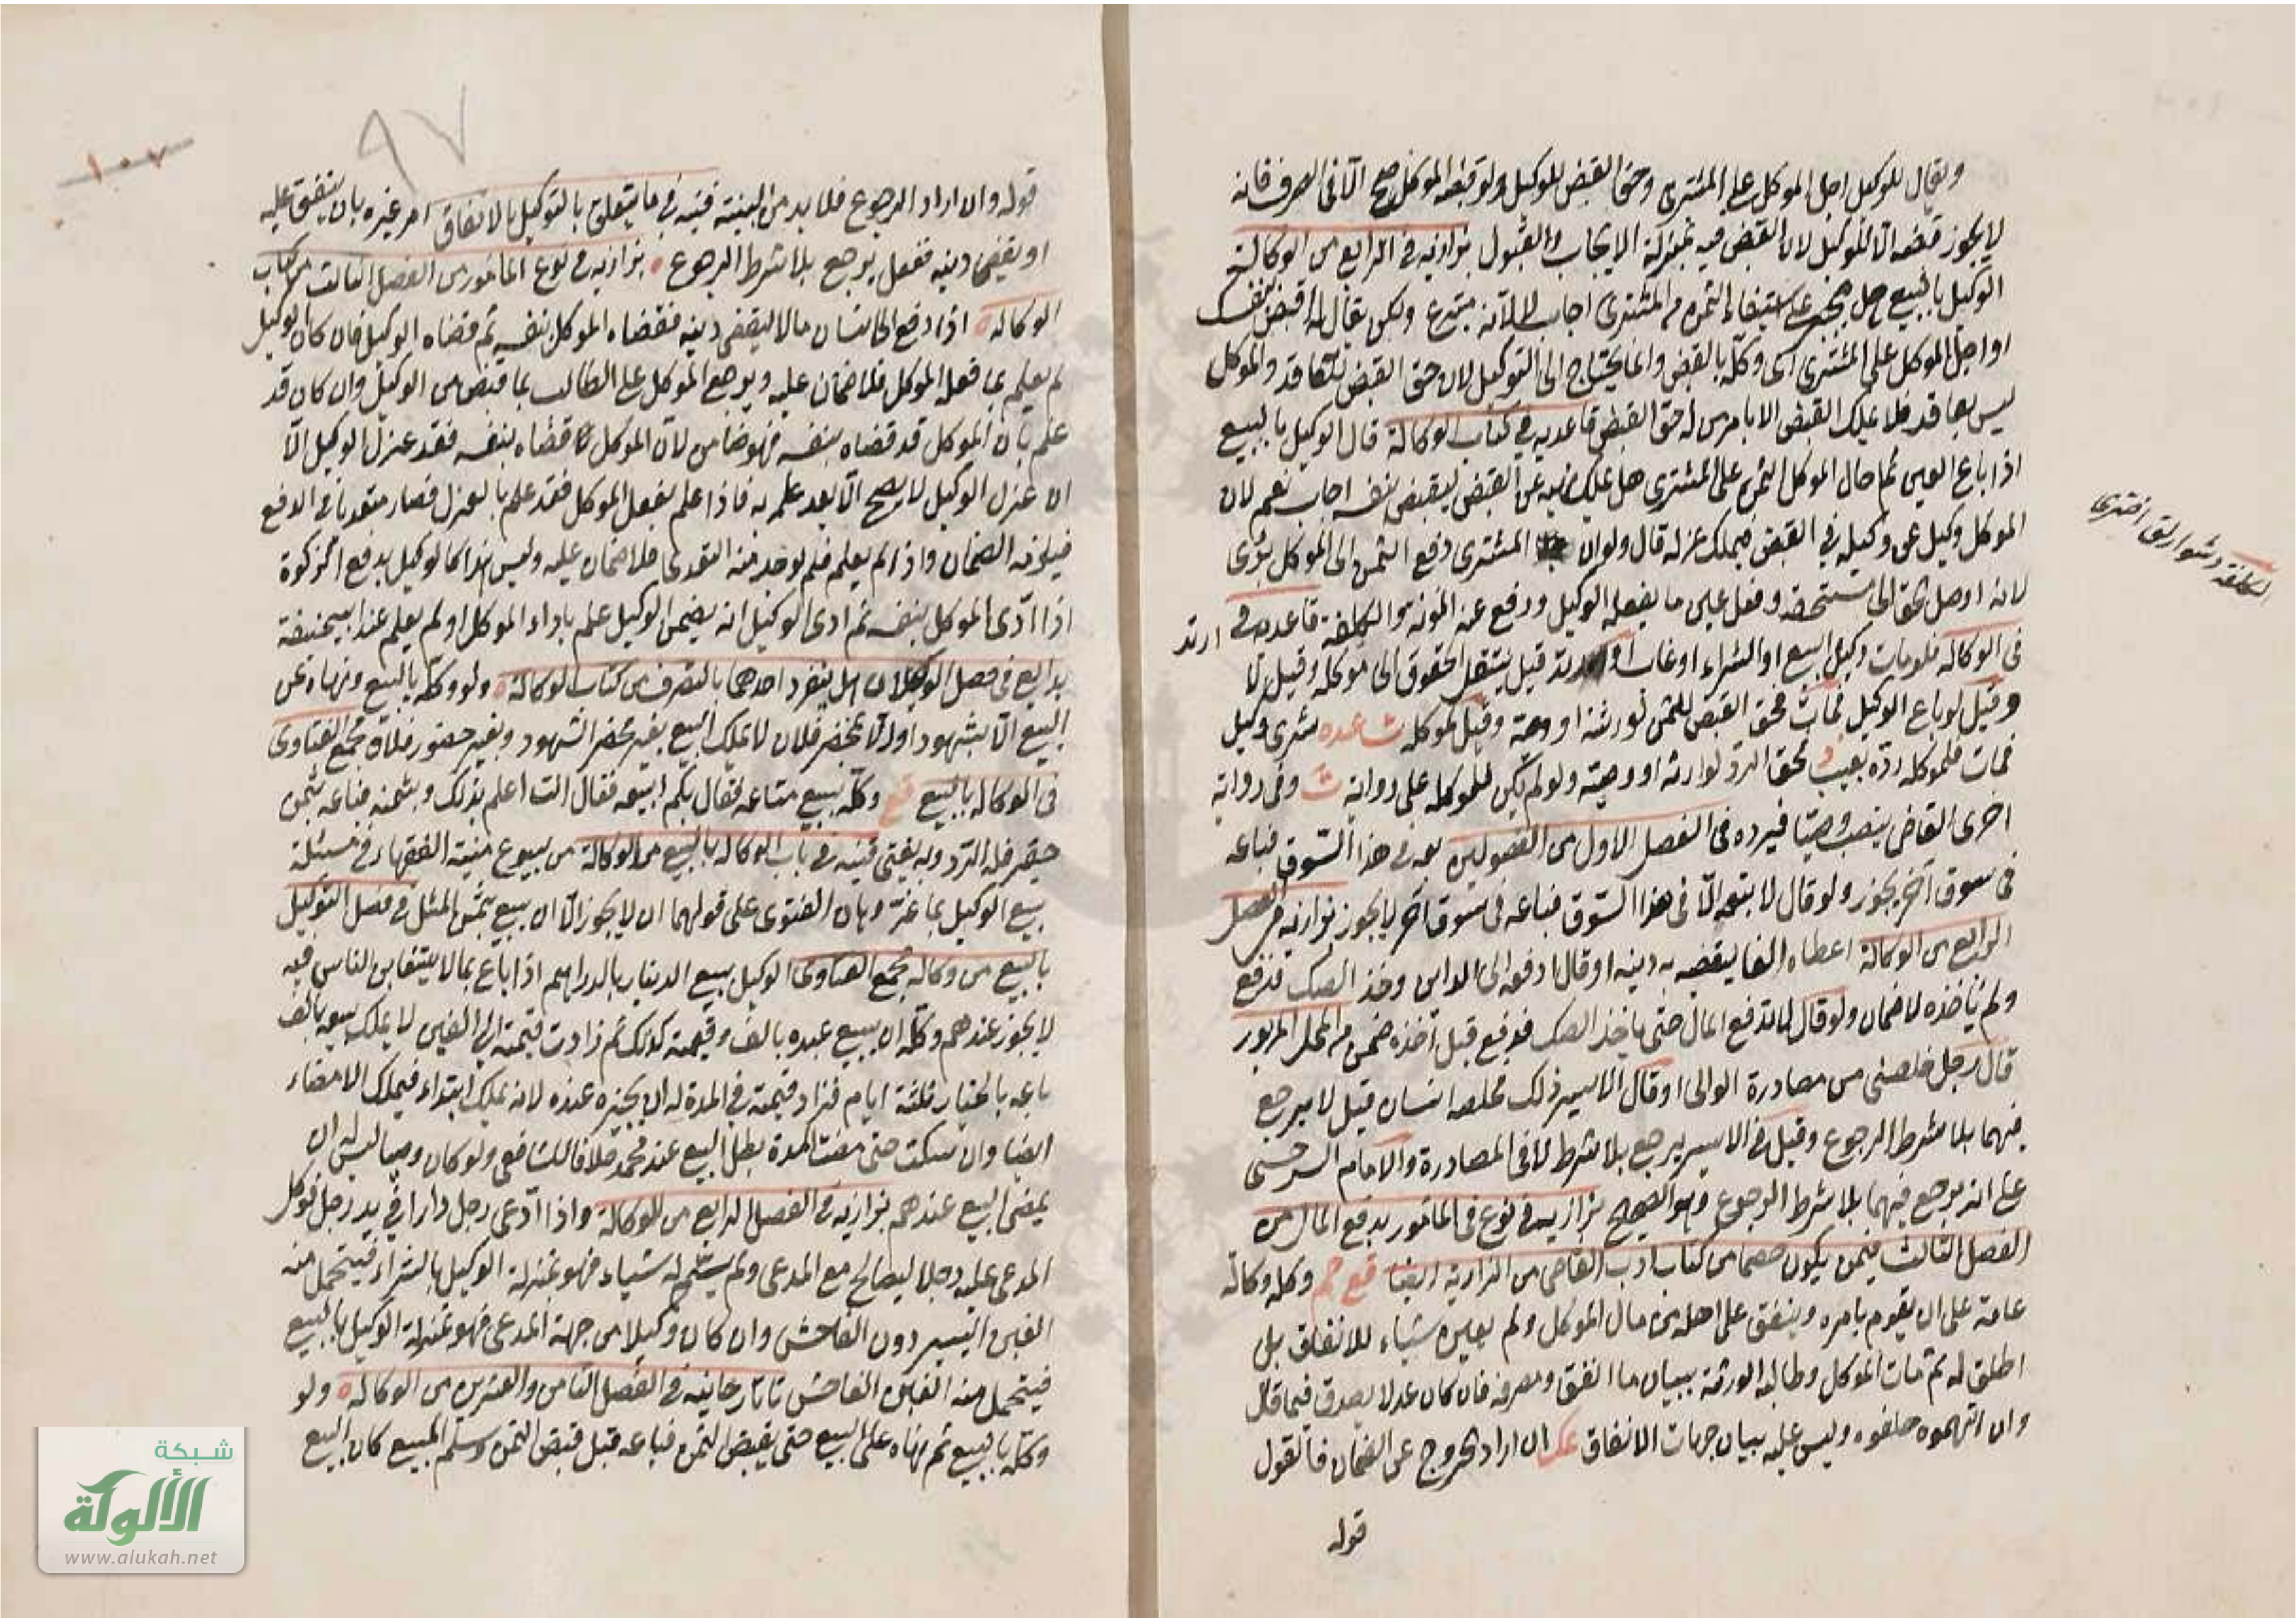 ويقال للوكيل احل الموكل على المشترى وحق القبض للوكيل ولو قبضه الموكل صح الا فى الصرف فانه
لا يجوز قبضه الا للوكيل لان القبض فيه بمنزلة الايجاب والقبول بزازيه فى الرابع من الوكالة
الوكيل بالبيع هل يجبر على استيفاء الثمن من المشترى اجاب لا لانه متبرع ولكن يقال له اقبض بنفسك
او احل الموكل على المشترى اى وكله بالقبض وانما يحتاج الى التوكيل لان حق القبض للعاقد والموكل
ليس بعاقد فلا يملك القبض الا بامر من له حق القبض قاعديه فى كتاب الوكالة قال الوكيل بالبيع
اذا باع العين ثم احال الموكل الثمن على المشترى هل يملك نهيه عن القبض ليقبض بنفسه اجاب نعم لان
الموكل وكيل عن وكيله فى القبض فيملك عزله قال ولو ان المشترى دفع الثمن الى الموكل برئ
لانه اوصل الحق الى مستحقه وفعل عين ما يفعله الوكيل ودفع عنه المونة والكلفة قاعديه فى
فى الوكالة فلو مات وكيل البيع او الشراء او غاب او ارتد قيل ينتقل الحقوق الى موكله وقيل لا
وقيل لو باع الوكيل فمات فحق القبض للثمن لورثته او وصيه وقيل لموكله شرى وكيل
فمات فلموكله رده بعيب فحق الرد لوارثه او وصيه ولو لم يكن فللموكله على رواية وفى رواية
اخرى القاضى ينصب وصيا فيرده فى الفصل الاول من الفصولين بعه فى هذا السوق فباعه
فى سوق آخر يجوز ولو قال لا بتعه الا فى هذا السوق فباعه فى سوق آخر لا يجوز بزازيه من الفصل
الرابع من الوكالة اعطاه الفا ليقضيه به دينه او قال ادفعه الى الداين وخذ الصك فدفع
ولم ياخذه لا ضمان ولو قال لا تدفع المال حتى ياخذ الصك فدفع قبل اخذه ضمن من المحل المزبور
قال رجل خلصنى من مصادرة الوالى او قال الاسير ذلك فخلصه انسان قيل لا يرجع
فيهما بلا شرط الرجوع وقيل فى الاسير يرجع بلا شرط لا فى المصادرة والامام السرخسى
على انه يرجع فيهما بلا شرط الرجوع وهو الصحيح بزازيه فى نوع فى المأمور بدفع المال من
الفصل الثالث فيمن يكون خصما من كتاب ادب القاضى من البزازية ايضا وكله وكالة
عامة على ان يقوم بامره وينفق على اهله من مال الموكل ولم يعين شياء للانفاق بل
اطلق له ثم مات الموكل وطالبه الورثة ببيان ما انفق ومصرفه فان كان عدلا يصدق فيما قال
وان اتهموه حلفوه وليس عليه بيان جهات الانفاق ان اراد الخروج عن الضمان فالقول
قوله
ارتد
الكلفة اخترى
٩٧
١٠٧
قوله وان اراد الرجوع فلا بد من البينة قنيه فى ما يتعلق بالتوكيل بالانفاق امر غيره بان ينفق عليه
او يقضى دينه ففعل يرجع بلا شرط الرجوع بزازيه فى نوع المأمور من الفصل الثالث من كتاب
الوكالة اذا دفع الى انسان مالا ليقضى دينه فقضاه الموكل بنفسه ثم قضاه الوكيل فان كان الوكيل
لم يعلم بما فعله الموكل فلا ضمان عليه ويرجع الموكل على الطالب بما قبض من الوكيل وان كان قد
علم بان الموكل قد قضاه بنفسه فهو ضامن لان الموكل لما قضاه بنفسه فقد عزل الوكيل الا
ان عزل الوكيل لا يصح الا بعد علمه به فاذا علم بفعل الموكل فقد علم بالعزل فصار متعديا فى الدفع
فيلزمه الضمان واذا لم يعلم فلم يوجد منه التعدى فلا ضمان عليه وليس هذا كالوكيل بدفع الزكوة
اذا ادى الموكل بنفسه ثم ادى الوكيل انه يضمن الوكيل علم باداء الموكل او لم يعلم عند ابيحنيفة
بدايع فى فصل الوكيلان هل ينفرد احدهما بالتصرف من كتاب الوكالة ولو وكله بالبيع ونهاه عن
البيع الا بشهود او الا بمحضر فلان لا يملك البيع بغير محضر الشهود وبغير حضور فلان مجمع الفتاوى
فى الوكالة بالبيع قع وكله ببيع متاعه فقال بكم ابيعه فقال انت اعلم بذلك وبثمنه فباعه بثمن
حقير فله الرد وبه يفتى قنيه فى باب الوكالة بالبيع من الوكالة من بيوع منية الفقهاء فى مسئلة
بيع الوكيل بما عز وهان الفتوى على قولهما ان لا يجوز الا ان يبيع بثمن المثل فى فصل التوكيل
بالبيع من وكالة مجمع الفتاوى الوكيل ببيع الدينار بالدراهم اذا باع بما لا يتغابن الناس فيه
لا يجوز عندهم وكله ان يبيع عبده بالف وقيمته كذلك ثم زادت قيمته الى الفين لا يملك بيعه بالف
باعه بالخيار ثلثة ايام فزاد قيمته فى المدة له ان يجيزه عنده لانه يملك ابتداء فيملك الامضاء
ايضا وان سكت حتى مضت المدة بطل البيع عند محمد خلافا للشافعى ولو كان وصيا ليس له ان
يمضى البيع عندهم بزازيه فى الفصل الرابع من الوكالة واذا ادعى رجل دارا فى يد رجل فوكل
المدعى عليه رجلا ليصالح مع المدعى ولم يسم له شياء فهو بمنزلة الوكيل بالشراء فيتحمل منه
الغبن اليسير دون الفاحش وان كان وكيلا من جهة المدعى فهو بمنزلة الوكيل بالبيع
فيتحمل منه الغبن الفاحش تاتارخانيه فى الفصل الثامن والعشرين من الوكالة ولو
وكله بالبيع ثم نهاه على البيع حتى يقبض الثمن فباعه قبل قبض الثمن وسلم المبيع كان البيع
شبكة
الألوكة
www.alukah.net